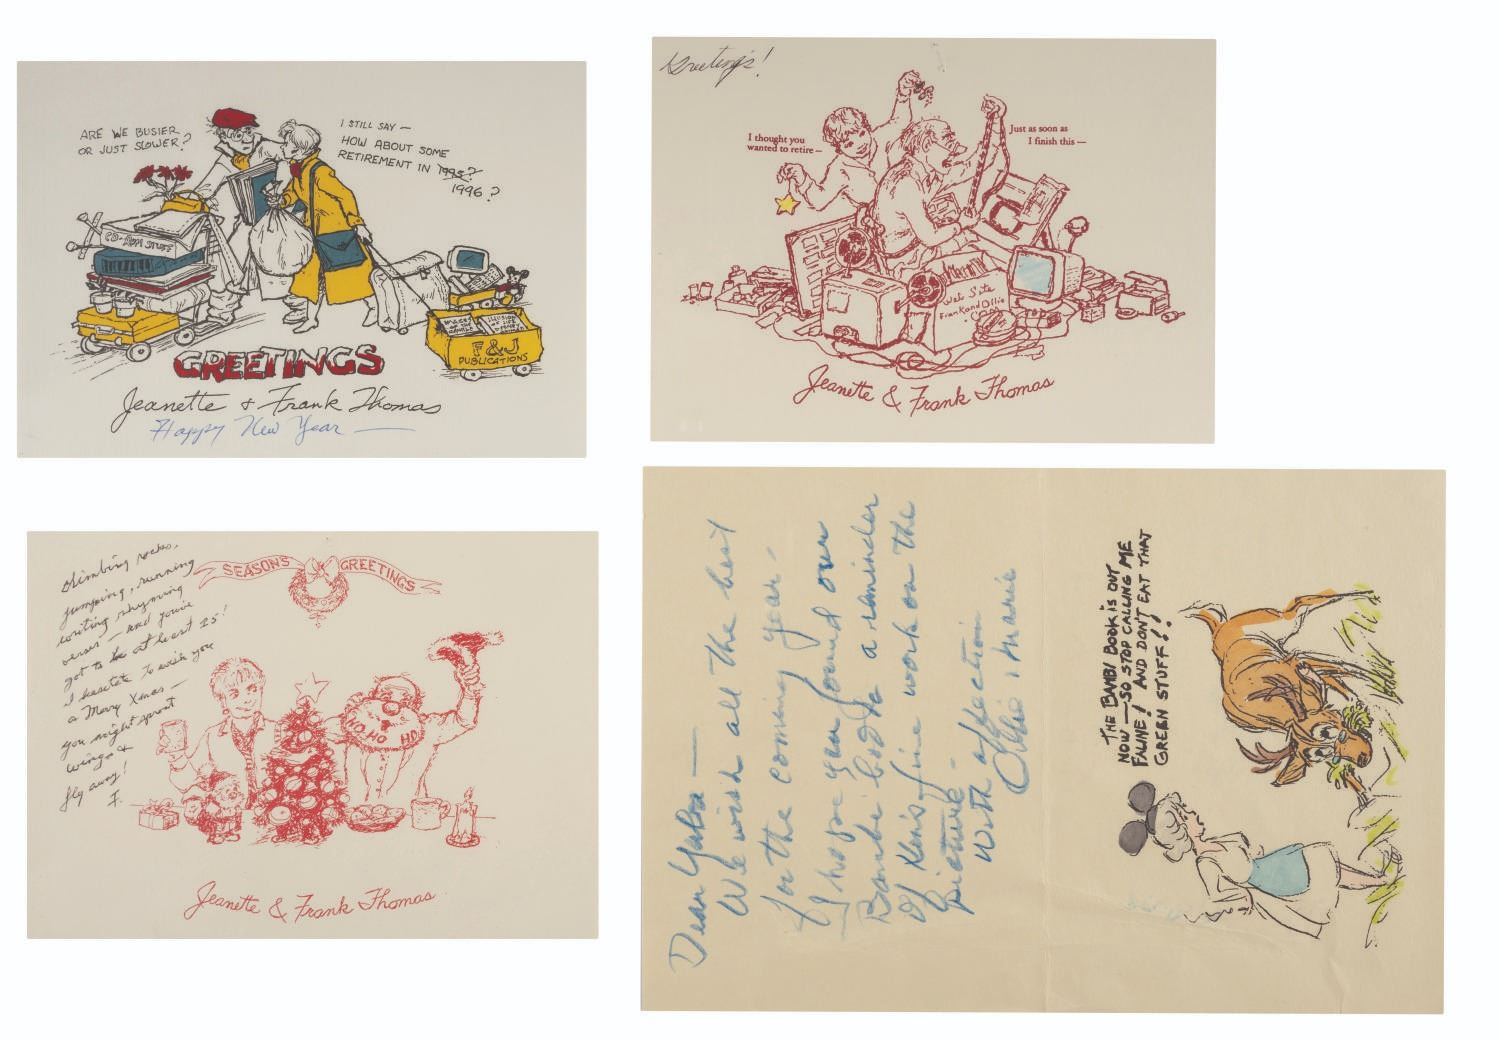 ARE WE BUSIER
OR JUST SLOWER?
I STILL SAY —
HOW ABOUT SOME
RETIREMENT IN 1995?
1996?
CD-ROM STUFF
F & J
PUBLICATIONS
GREETINGS
Jeanette & Frank Thomas
Happy New Year —
Greetings!
I thought you
wanted to retire —
Just as soon as
I finish this —
Web Site
Frank and Ollie
.com
Jeanette & Frank Thomas
climbing rocks,
jumping, running
writing rhyming
verses — and you've
got to be at least 25!
I hesitate to wish you
a Merry Xmas —
you might sprout
wings &
fly away!
F.
SEASON'S GREETINGS
HO-HO HO
Jeanette & Frank Thomas
Dear
We wish all the best
for the coming year —
I hope you found our
Bambi book a reminder
of Ken's fine work on the
picture —
With affection
Ollie & Marie
THE BAMBI BOOK IS OUT
NOW — SO STOP CALLING ME
FALINE! AND DON'T EAT THAT
GREEN STUFF!!